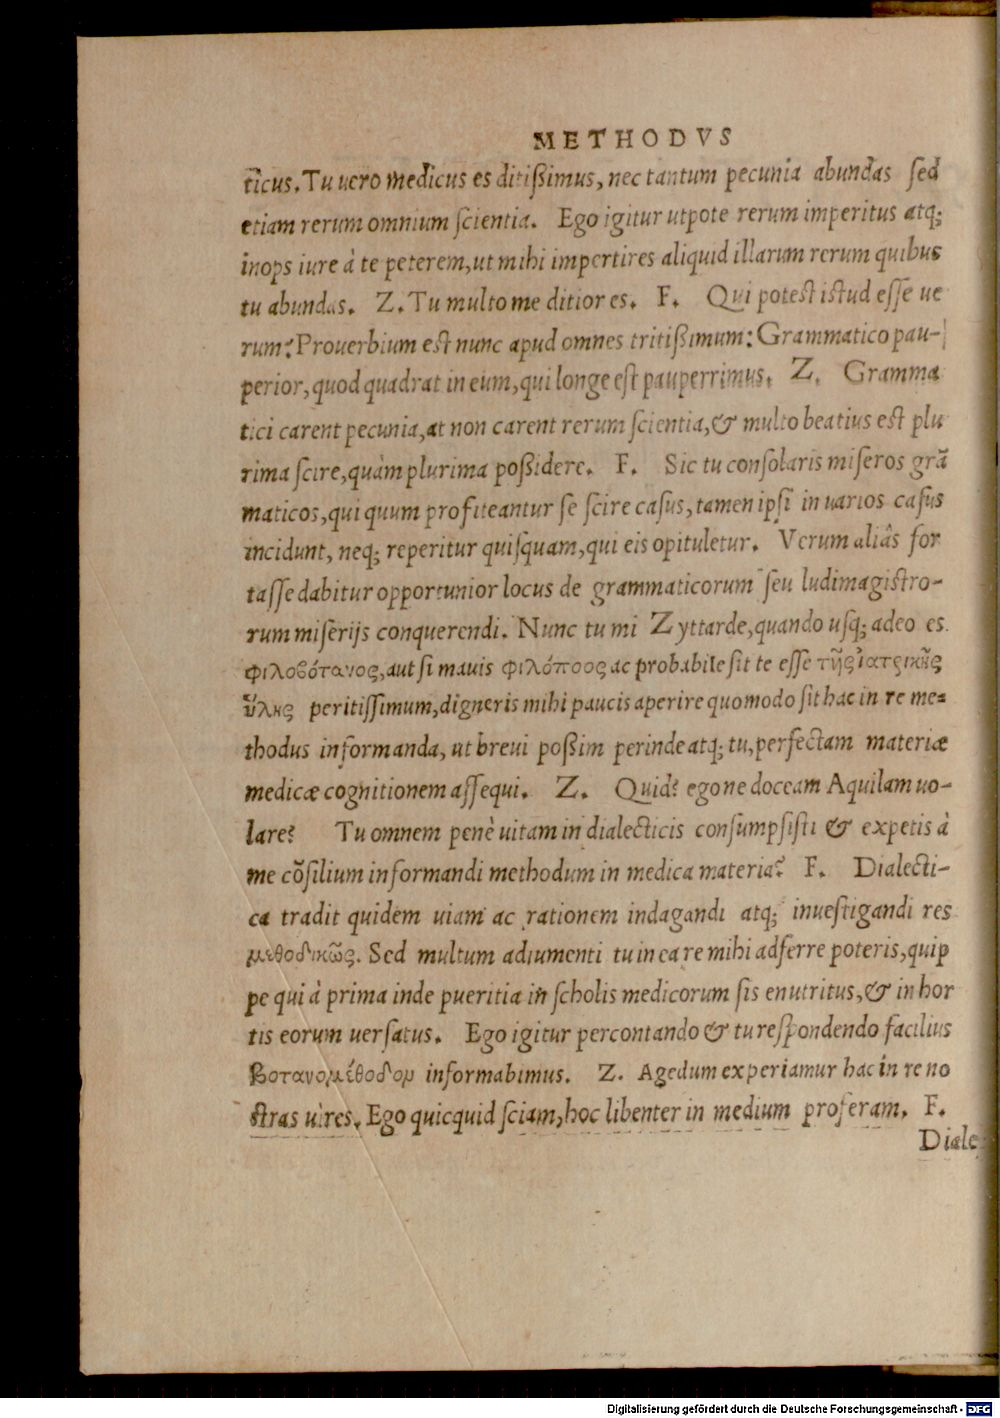 METHODVS
ticus. Tu uero medicus es ditißimus, nec tantum pecunia abundas sed
etiam rerum omnium scientia. Ego igitur utpote rerum imperitus atq;
inops iure à te peterem, ut mihi impertires aliquid illarum rerum quibus
tu abundas. Z. Tu multo me ditior es. F. Qui potest istud esse ue
rum? Prouerbium est nunc apud omnes tritißimum: Grammatico pau-
perior, quod quadrat in eum, qui longe est pauperrimus. Z. Gramma
tici carent pecunia, at non carent rerum scientia, & multo beatius est plu
rima scire, quàm plurima poßidere. F. Sic tu consolaris miseros grã
maticos, qui quum profiteantur se scire casus, tamen ipsi in uarios casus
incidunt, neq; reperitur quisquam, qui eis opituletur. Verum aliâs for
tasse dabitur opportunior locus de grammaticorum seu ludimagistro-
rum miserijs conquerendi. Nunc tu mi Zyttarde, quando usq; adeo es
φιλοβότανος, aut si mauis φιλόποος ac probabile sit te esse τῆς ἰατρικῆς
ὕλης peritissimum, digneris mihi paucis aperire quomodo sit hac in re me=
thodus informanda, ut breui poßim perinde atq; tu, perfectam materiæ
medicæ cognitionem assequi. Z. Quid? egone doceam Aquilam uo-
lare? Tu omnem penè uitam in dialecticis consumpsisti & expetis à
me cõsilium informandi methodum in medica materia? F. Dialecti-
ca tradit quidem uiam ac rationem indagandi atq; inuestigandi res
μεθοδικῶς. Sed multum adiumenti tu in ea re mihi adferre poteris, quip
pe qui à prima inde pueritia in scholis medicorum sis enutritus, & in hor
tis eorum uersatus. Ego igitur percontando & tu respondendo facilius
βοτανομέθοδον informabimus. Z. Agedum experiamur hac in re no
stras uires. Ego quicquid sciam, hoc libenter in medium proferam. F.
Diale
Digitalisierung gefördert durch die Deutsche Forschungsgemeinschaft - DFG